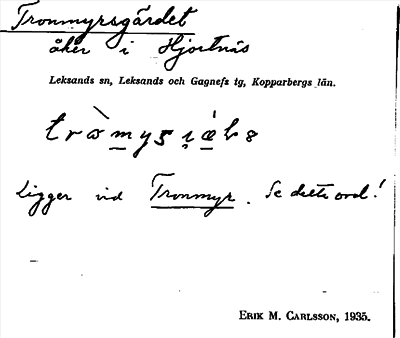 Tronmyrsgärdet
åker i Hjortnäs
Leksands sn, Leksands och Gagnefs tg, Kopparbergs län.
Ligger vid Tronmyr. Se detta ord!
ERIK M. CARLSSON, 1935.